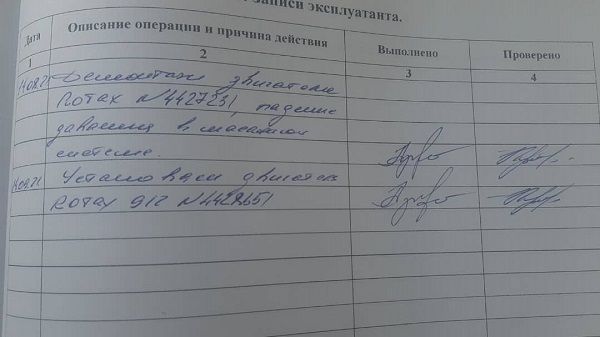 записи эксплуатанта.
Дата Описание операции и причина действия Выполнено Проверено
1 2 3 4
14.08.21 Демонтаж двигателя
Rotax N4427231, падение
давления в масляной
системе.
Установлен двигатель
Rotax 912 N4428651